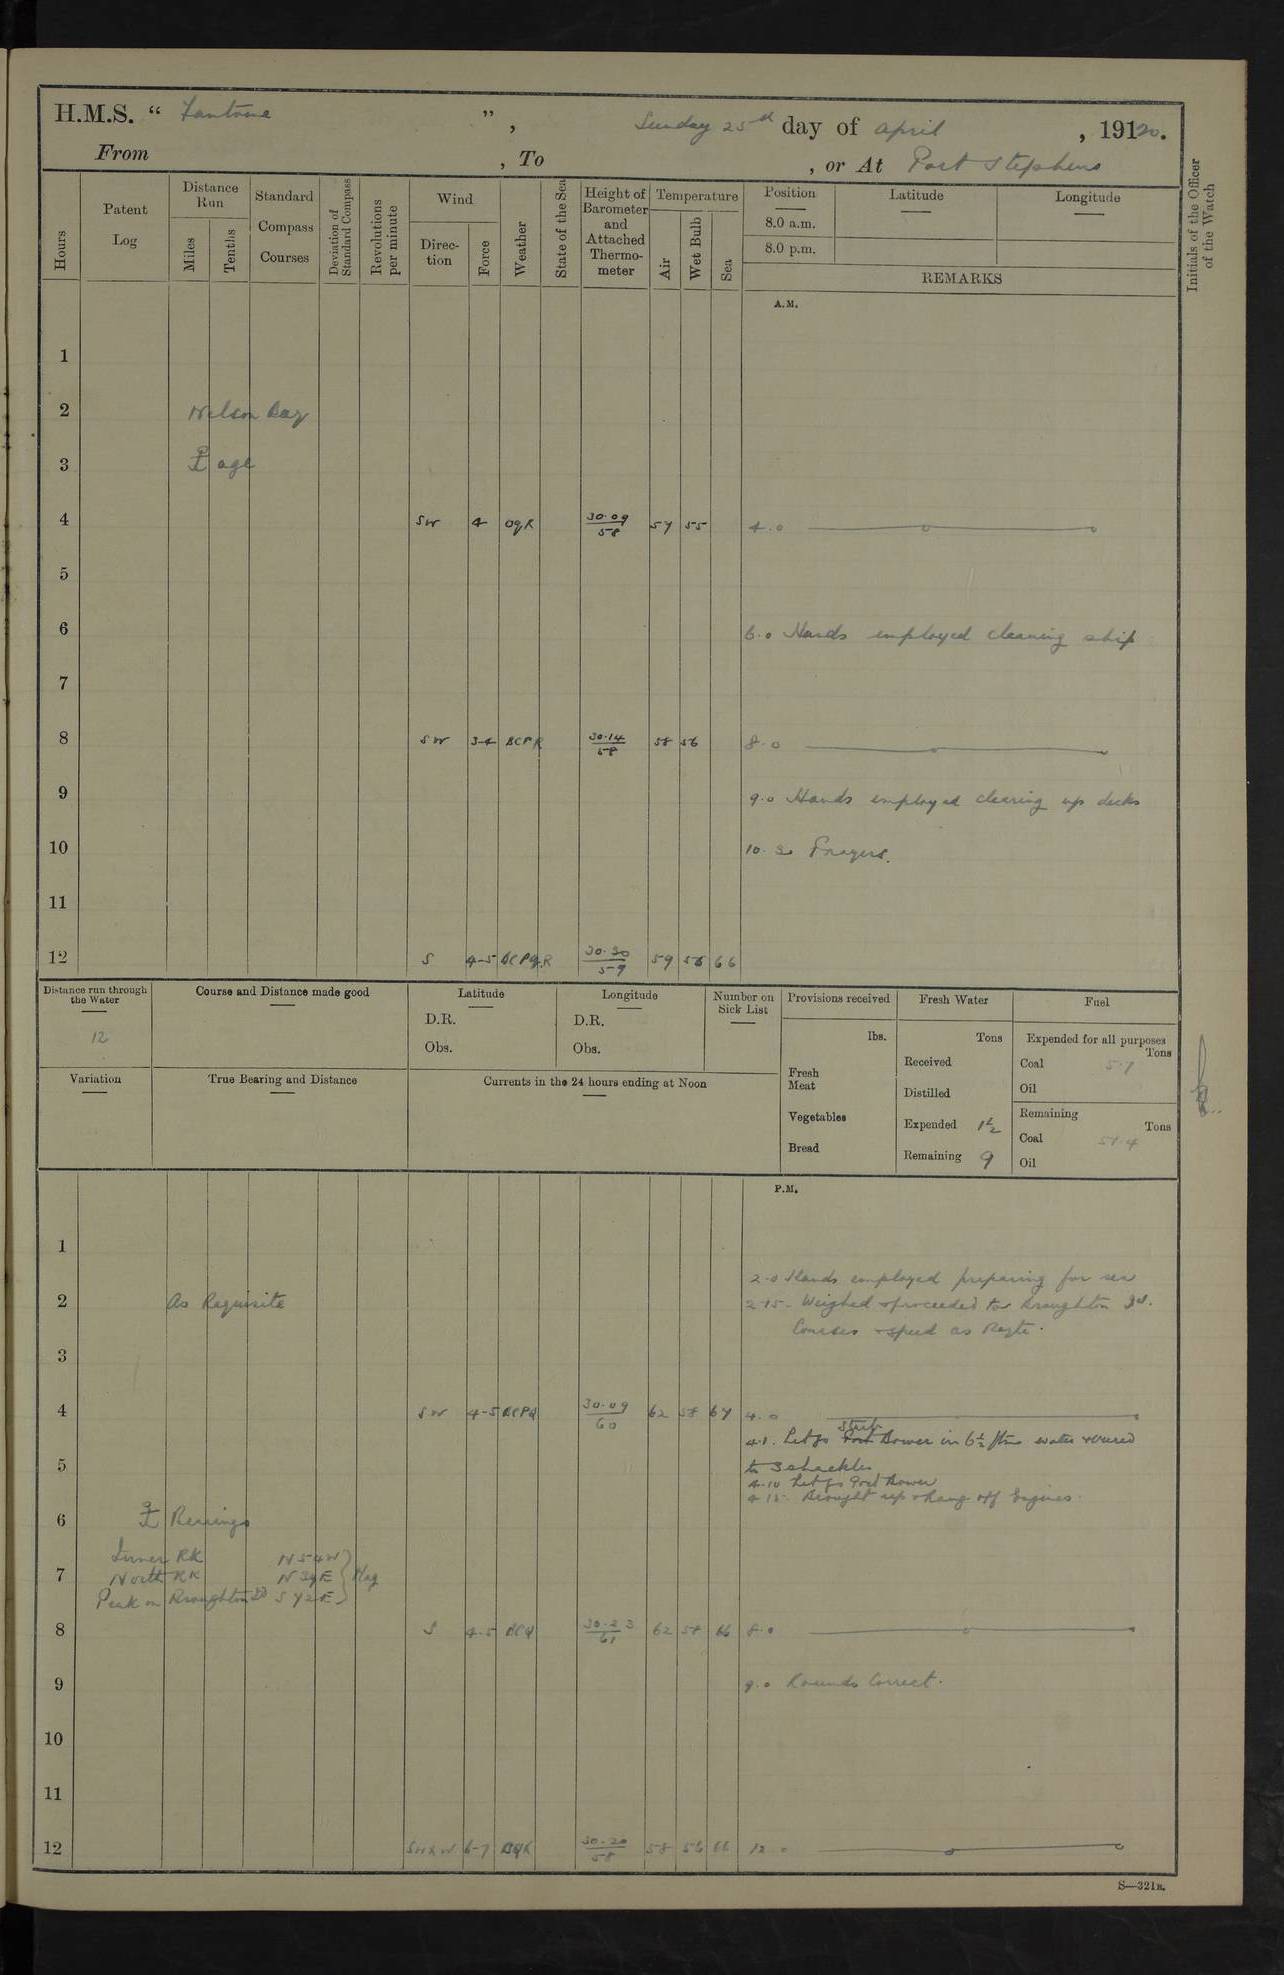 H.M.S. “ Fantome ”, Sunday 25th day of April , 19120.
From , To , or At Port Stephens
Hours
Patent Log
Distance Run
Miles
Tenths
Standard Compass Courses
Deviation of Standard Compass
Revolutions per minute
Wind
Direction
Force
Weather
State of the Sea
Height of Barometer and Attached Thermometer
Temperature
Air
Wet Bulb
Sea
Position
8.0 a.m.
8.0 p.m.
Latitude
Longitude
REMARKS
Initials of the Officer of the Watch
A.M.
1
2 Nelson Bay
3 age
4 SW 4 OqR 30.09 58 57 55 4.0
5
6 6.0 Hands employed cleaning ship
7
8 SW 3-4 BCPR 30.14 58 58 56 8.0
9 9.0 Hands employed clearing up decks
10 10.30 Prayers.
11
12 S 4-5 BCPQR 30.30 59 59 56 66
Distance run through the Water
12
Course and Distance made good
Latitude
D.R.
Obs.
Longitude
D.R.
Obs.
Number on Sick List
Provisions received
lbs.
Fresh Meat
Vegetables
Bread
Fresh Water
Tons
Received
Distilled
Expended 1½
Remaining 9
Fuel
Expended for all purposes
Tons
Coal 5.7
Oil
Remaining
Tons
Coal 51.4
Oil
Variation
True Bearing and Distance
Currents in the 24 hours ending at Noon
P.M.
1
2.0 Hands employed preparing for sea
2 As Requisite 2.15 - Weighed & proceeded to Broughton Id.
Courses & speed as Reqte.
3
4 SW 4-5 BCPQ 30.09 60 62 58 67 4.0
4.1. Let go Port Starb Bower in 6½ fms water veered
5 to 3 shackles
4.10 Let go Port Bower
4.15. Brought up & hang off Engines.
6 Bearings
Inner RK N54W
7 North RK N39E Mag
Peak on Broughton Id S72E
8 S 4-5 BCQ 30.23 61 62 58 66 8.0
9 9.0 Rounds Correct.
10
11
12 SWxW 6-7 BQR 30.20 58 58 56 66 12.0
S—321B.